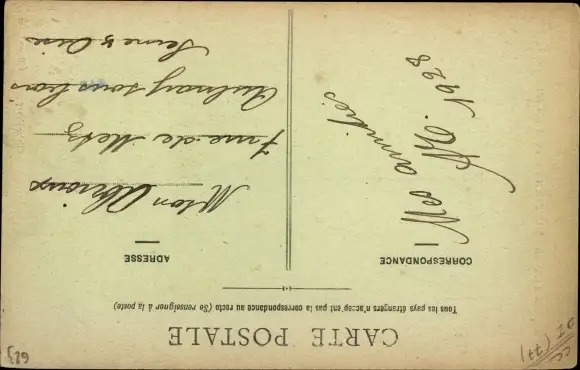 CARTE POSTALE
Tous les pays étrangers n'acceptent pas la correspondance au recto (Se renseigner à la poste)
CORRESPONDANCE
Mes amitiés
1928
ADRESSE
7 rue de Metz
Aulnay sous bois
Seine & Oise